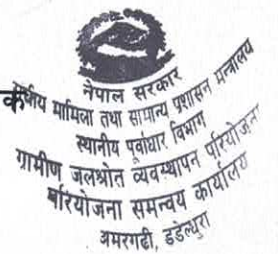 नेपाल सरकार
मामिला तथा सामान्य प्रशासन मन्त्रालय
स्थानीय पूर्वाधार विभाग
ग्रामीण जलश्रोत व्यवस्थापन परियोजना
परियोजना समन्वय कार्यालय
अमरगढी, डडेल्धुरा